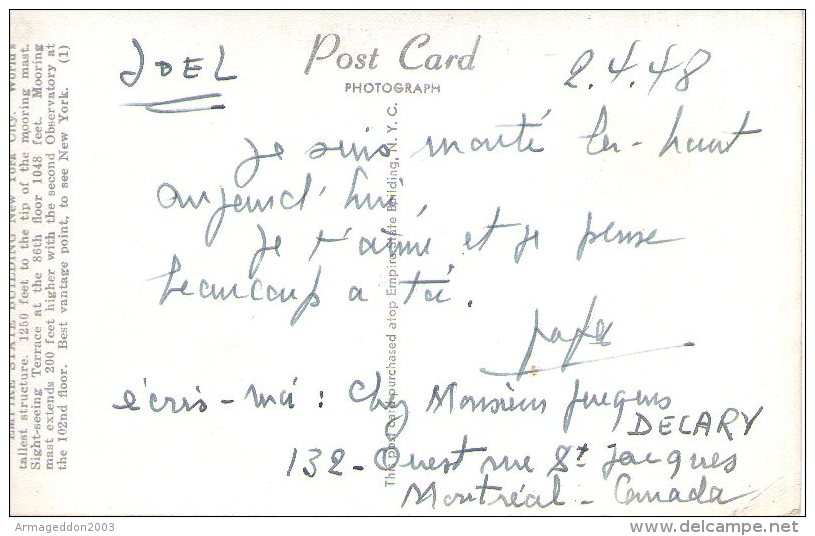 EMPIRE STATE BUILDING New York City. World's
tallest structure. 1250 feet to the tip of the mooring mast.
Sight-seeing Terrace at the 86th floor 1048 feet. Mooring
mast extends 200 feet higher with the second Observatory at
the 102nd floor. Best vantage point, to see New York. (1)
JOEL
Post Card
PHOTOGRAPH
2.4.48
Je suis monté là-haut
aujourd'hui.
Je t'aime et je pense
beaucoup à toi.
papa
écris-moi : chez Monsieur Jacques
DECARY
132 - Ouest rue St Jacques
Montréal - Canada
This post card purchased atop Empire State Building, N. Y. C.
Armageddon2003
delcampe.net